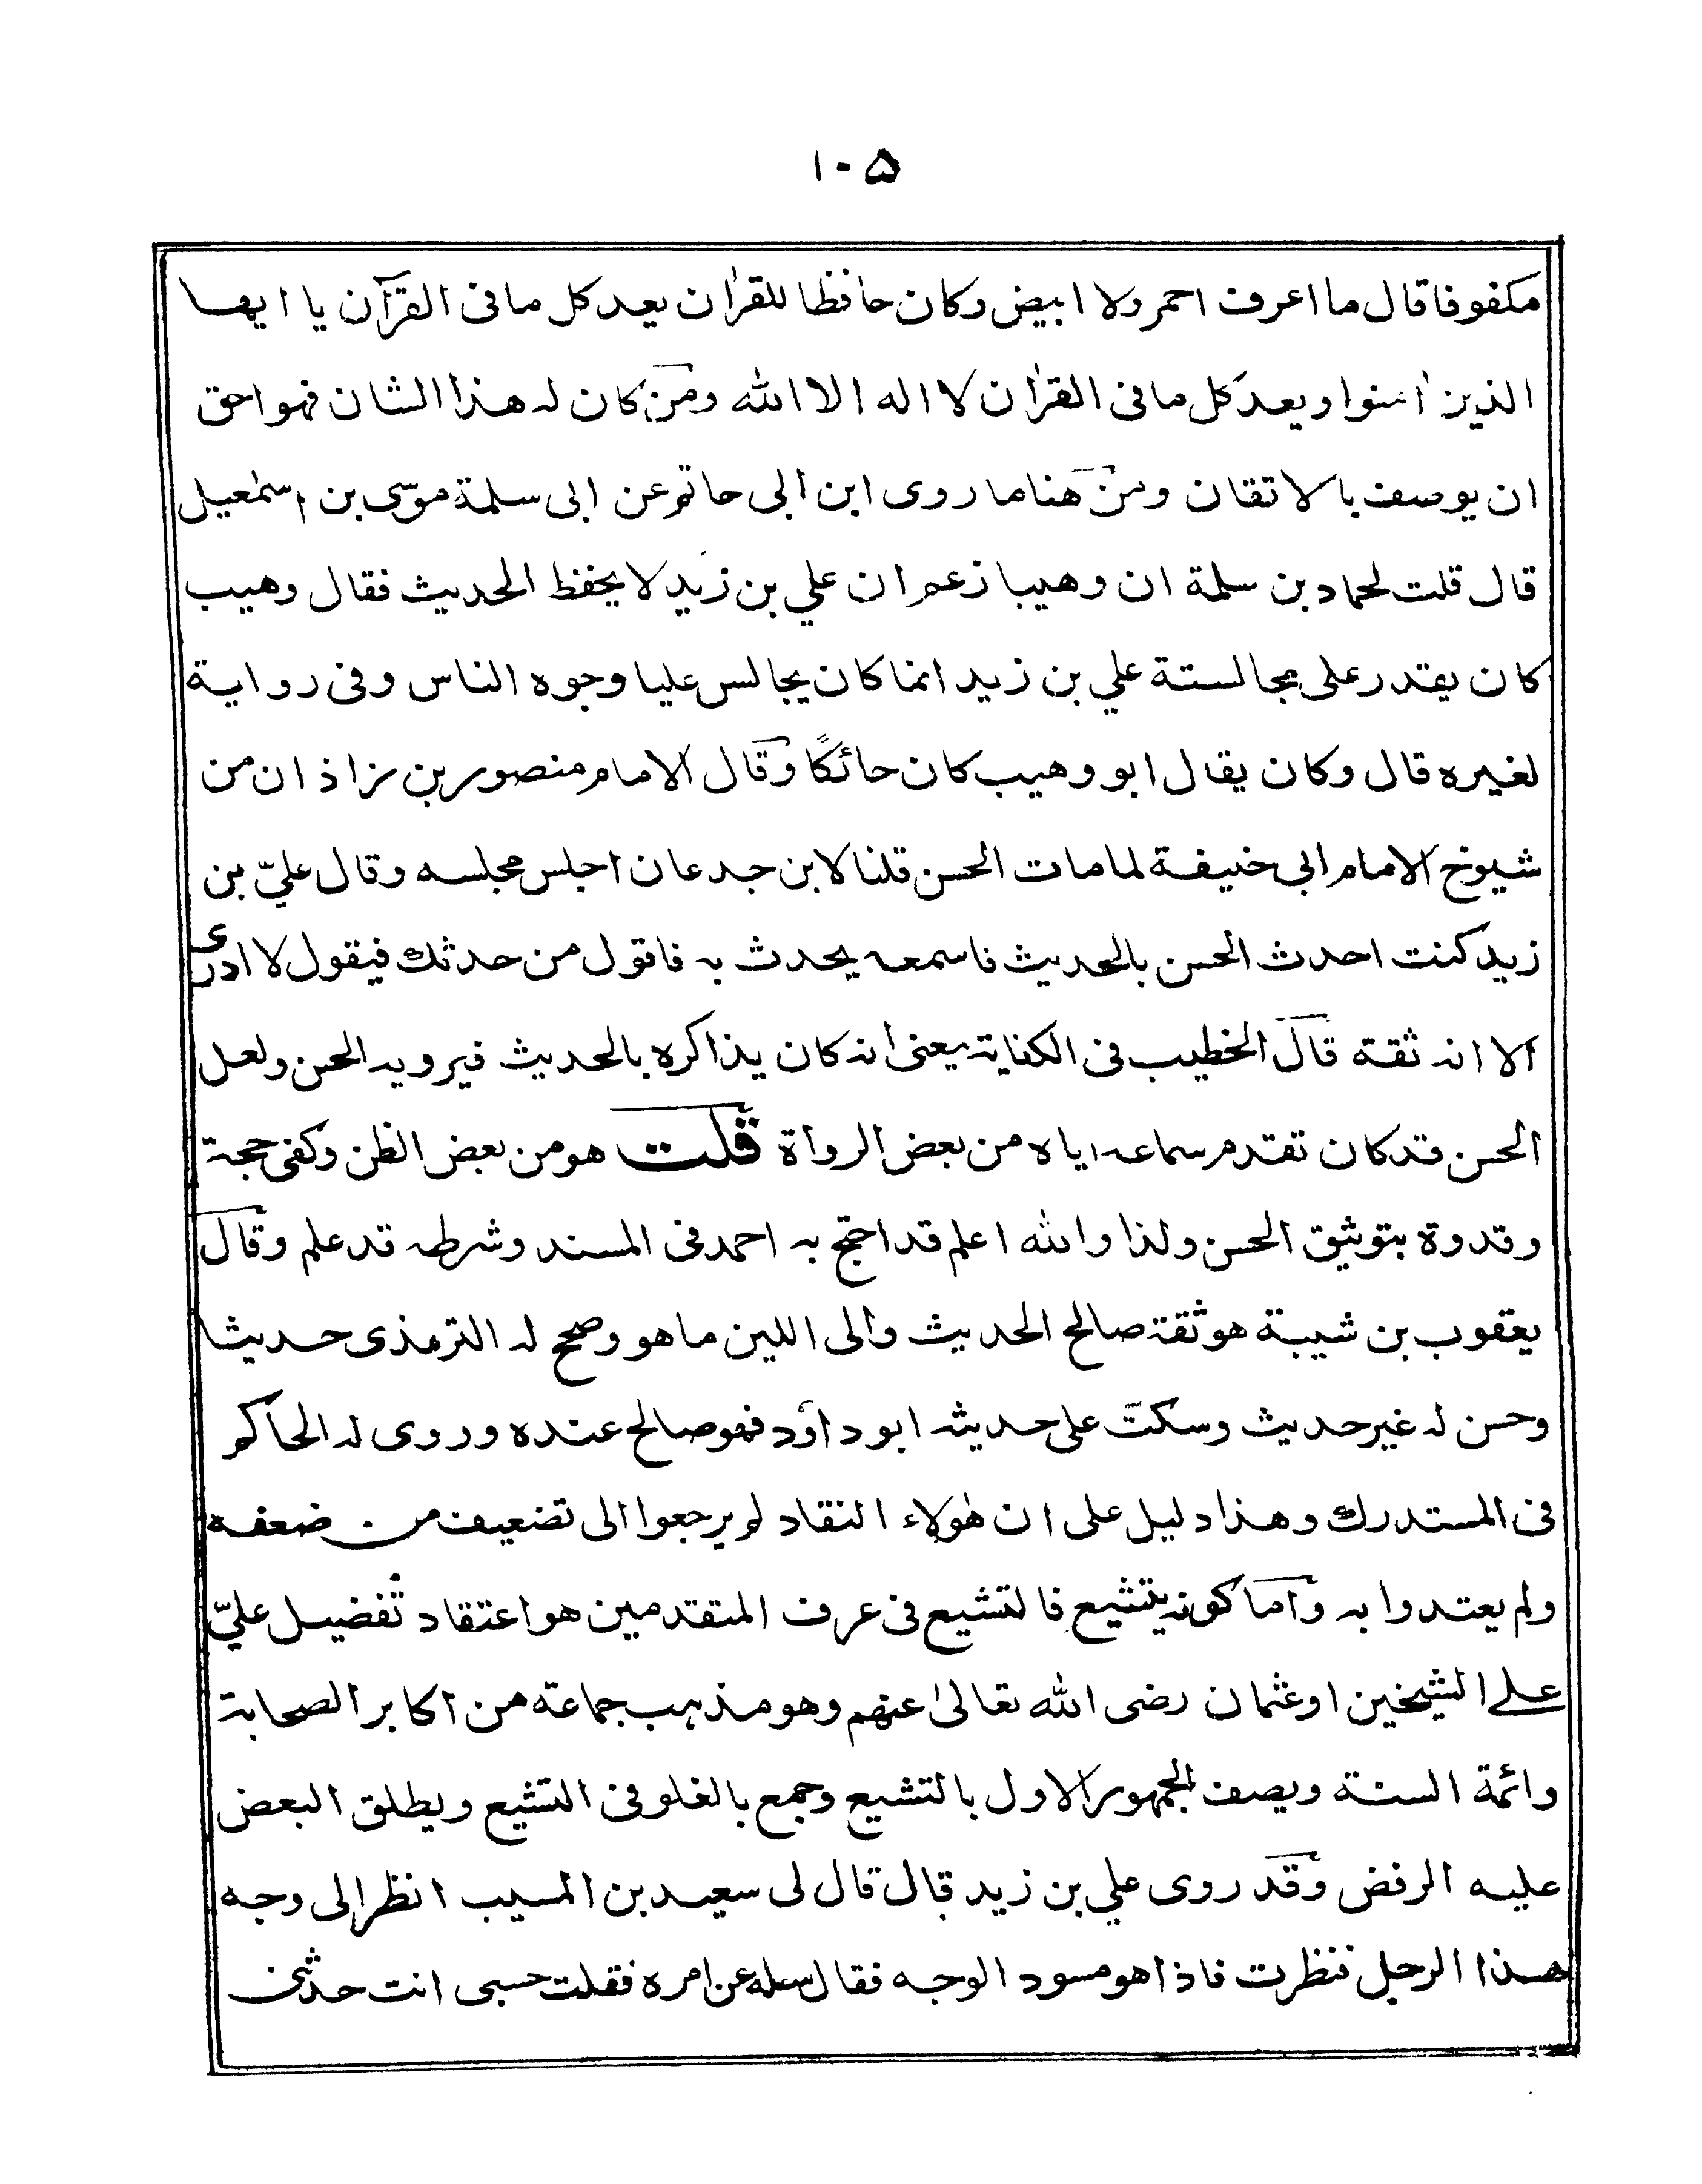 ١٠۵
مكفوفا قال ما اعرف احمر ولا ابيض وكان حافظا للقرٰان يعد كل ما فى القرآن يا ايها
الذين اٰمنوا ويعد كل ما فى القرٰان لا اله الا الله ومن كان له هذا الشان فهو احق
ان يوصف بالاتقان ومن هنا ما روى ابن ابى حاتم عن ابى سلمة موسى بن اسمٰعيل
قال قلت لحماد بن سلمة ان وهيبا زعم ان علي بن زيد لا يحفظ الحديث فقال وهيب
كان يقدر على مجالستة علي بن زيد انما كان يجالس عليا وجوه الناس وفى رواية
لغيره قال وكان يقال ابو وهيب كان حائكًا وقال الامام منصور بن زاذان من
شيوخ الامام ابى حنيفة لما مات الحسن قلنا لابن جدعان اجلس مجلسه وقال عليّ بن
زيد كنت احدث الحسن بالحديث فاسمعه يحدث به فاقول من حدثك فيقول لا ادرى
الا انه ثقة قال الخطيب فى الكفاية يعنى انه كان يذاكره بالحديث فيرويه الحسن ولعل
الحسن قد كان تقدم سماعه اياه من بعض الرواة قلت هو من بعض الظن وكفى حجة
وقدوة بتوثيق الحسن ولذا والله اعلم قد احتج به احمد فى المسند وشرطه قد علم وقال
يعقوب بن شيبة هو ثقة صالح الحديث والى اللين ما هو وصحح له الترمذى حديثا
وحسن له غير حديث وسكت على حديثه ابو داؤد فهو صالح عنده وروى له الحاكم
فى المستدرك وهذا دليل على ان هٰولاء النقاد لم يرجعوا الى تضعيف من ضعفه
ولم يعتدوا به واما كونه يتشيع فالتشيع فى عرف المتقدمين هو اعتقاد تفضيل عليّ
على الشيخين او عثمان رضى الله تعالىٰ عنهم وهو مذهب جماعة من اكابر الصحابة
وائمة السنة ويصف الجمهور الاول بالتشيع وجمع بالغلو فى التشيع ويطلق البعض
عليه الرفض وقد روى علي بن زيد قال قال لى سعيد بن المسيب انظر الى وجه
هذا الرجل فنظرت فاذا هو مسود الوجه فقال سله عن امره فقلت حسبى انت حدثنى